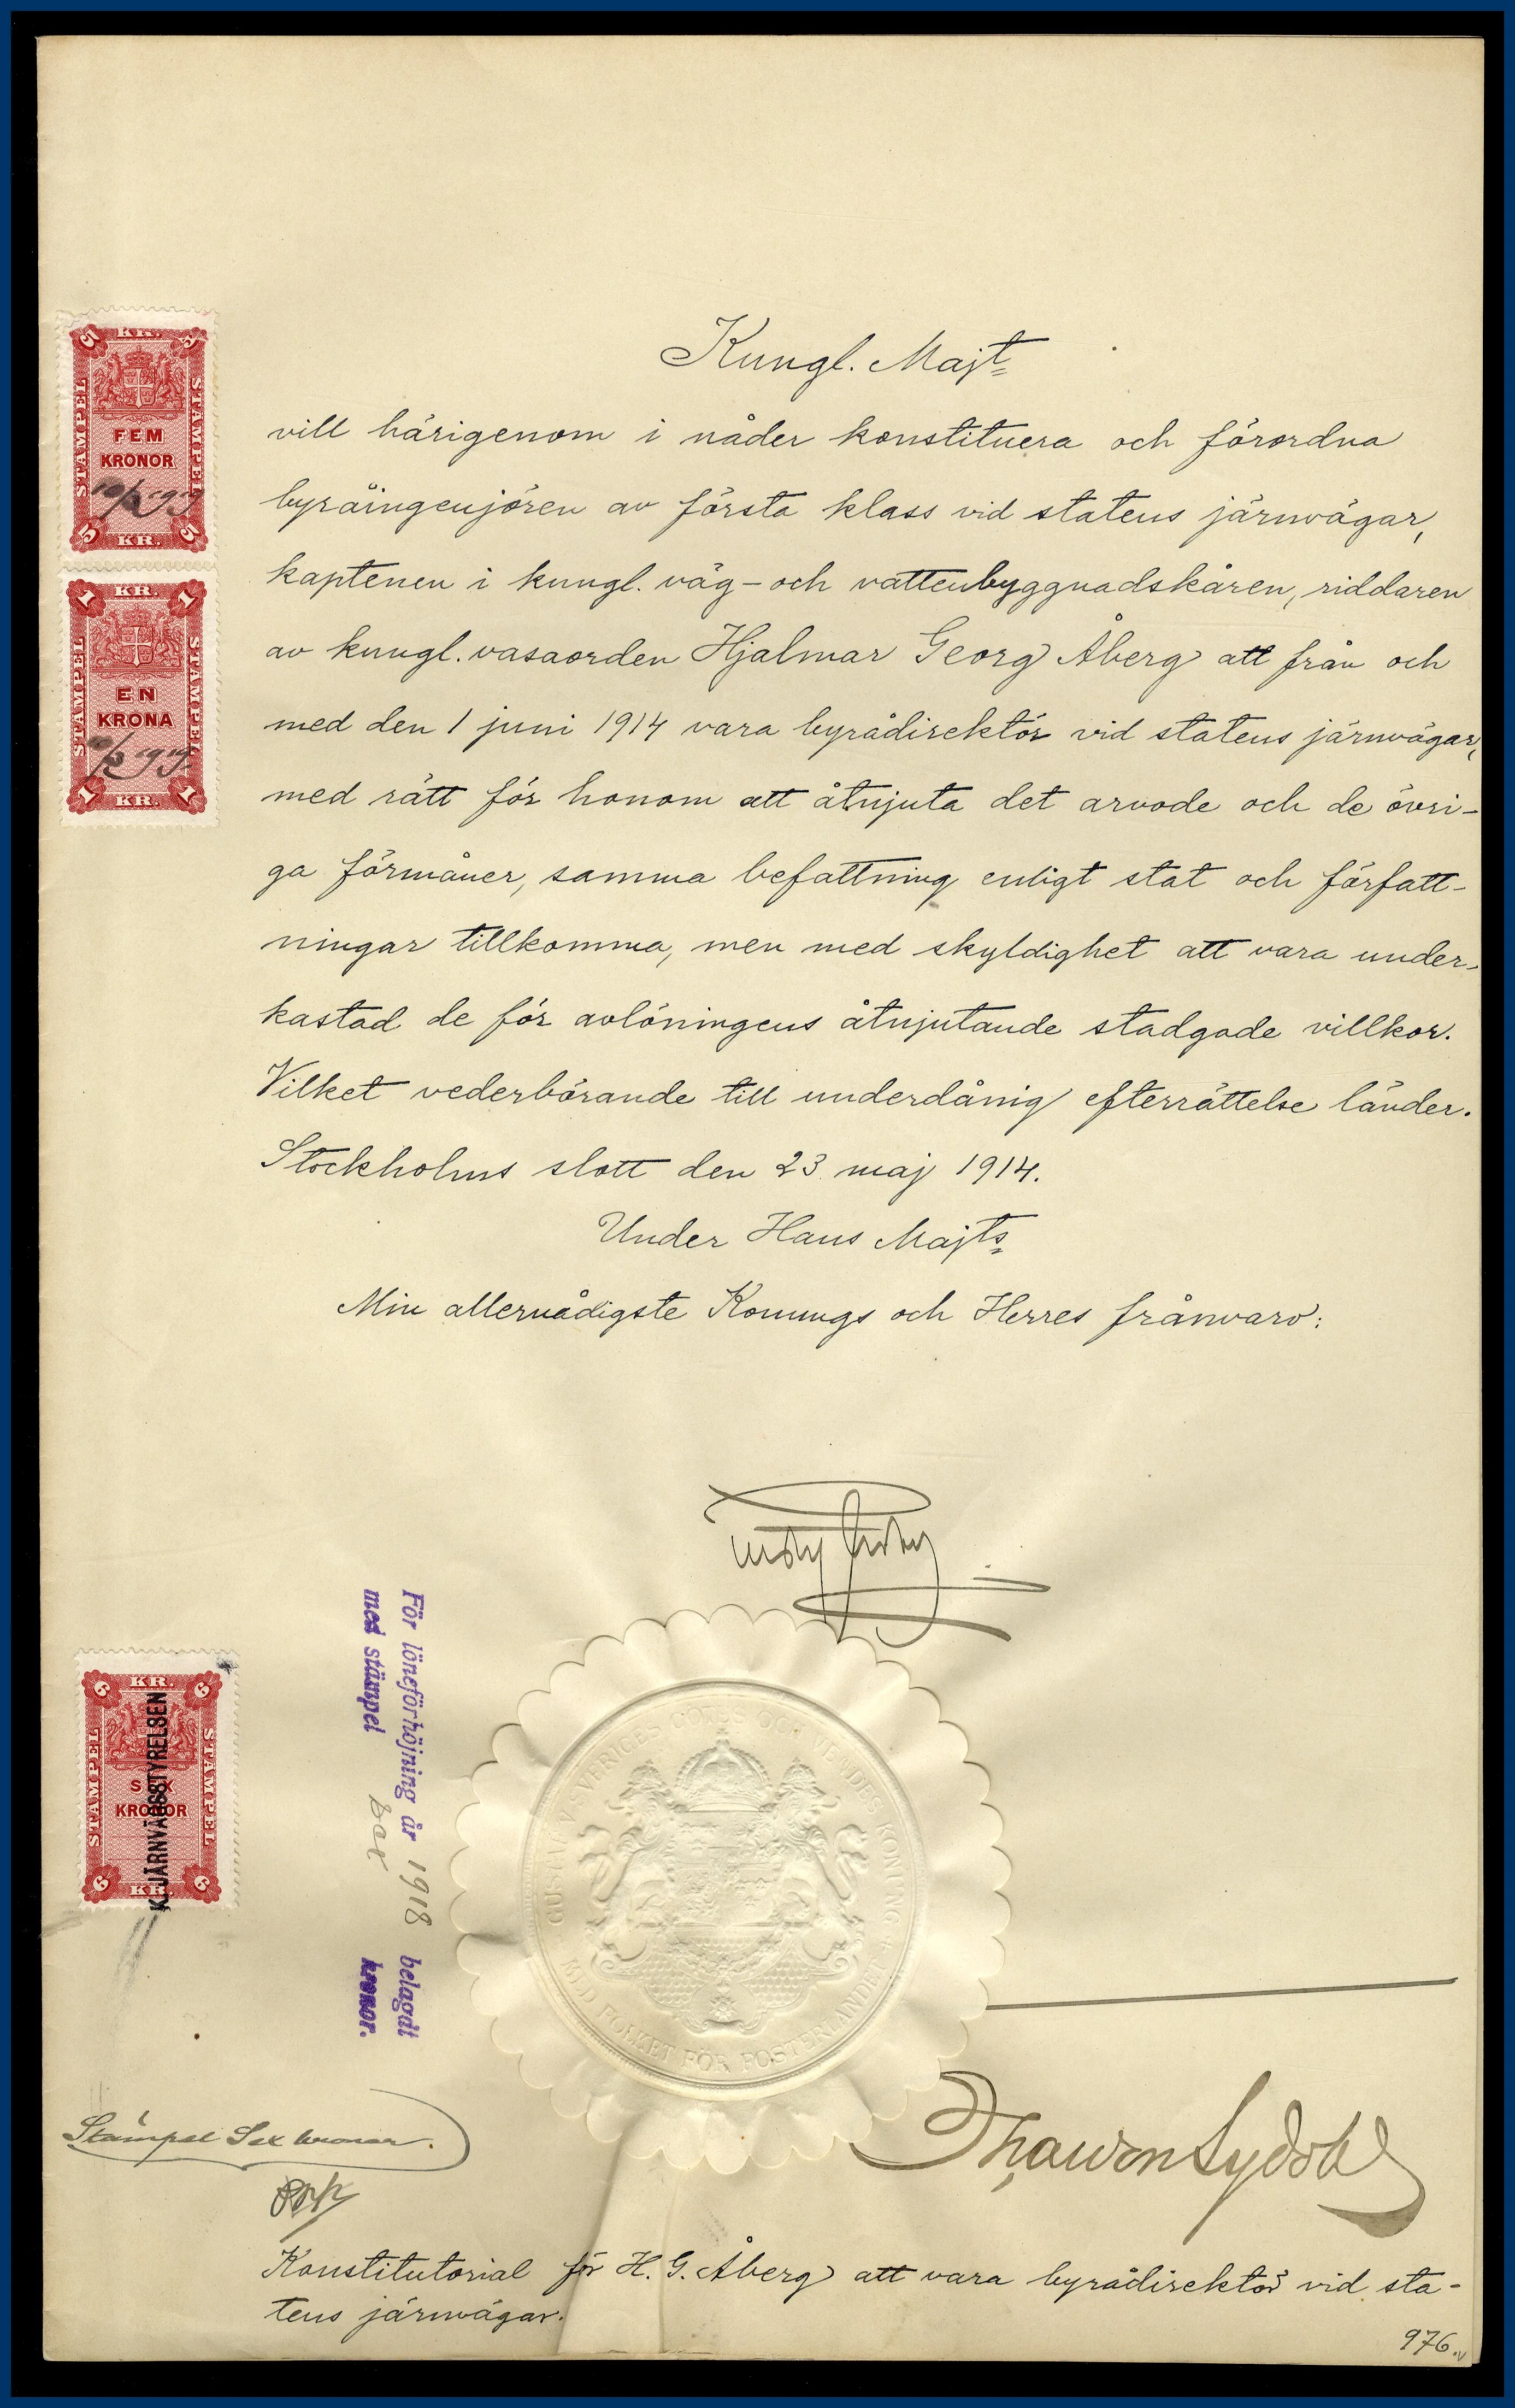 Kungl. Majt
vill härigenom i nåder konstituera och förordna
byråingenjören av första klass vid statens järnvägar,
kaptenen i kungl. väg- och vattenbyggnadskåren, riddaren
av kungl. vasaorden Hjalmar Georg Åberg att från och
med den 1 juni 1914 vara byrådirektör vid statens järnvägar,
med rätt för honom att åtnjuta det arvode och de övri-
ga förmåner, samma befattning enligt stat och författ-
ningar tillkomma, men med skyldighet att vara under-
kastad de för avlöningens åtnjutande stadgade villkor.
Vilket vederbörande till underdånig efterrättelse länder.
Stockholms slott den 23 maj 1914.
Under Hans Majts
Min allernådigste Konungs och Herres frånvaro:
KR.
5 5
STAMPEL
STAMPEL
FEM
KRONOR
5 5
KR.
KR.
1 1
STAMPEL
STAMPEL
EN
KRONA
1 1
KR.
KR.
6 6
STAMPEL
STAMPEL
SEX
KRONOR
6 6
KR.
K. JÄRNVÄGSSTYRELSEN
För löneförhöjning år 1918 belagdt
med stämpel sex kronor.
GUSTAF V SVERIGES GÖTES OCH VENDES KONUNG
MED FOLKET FÖR FOSTERLANDET
Stämpel Sex kronor.
Konstitutorial för H. G. Åberg att vara byrådirektör vid sta-
tens järnvägar.
976.